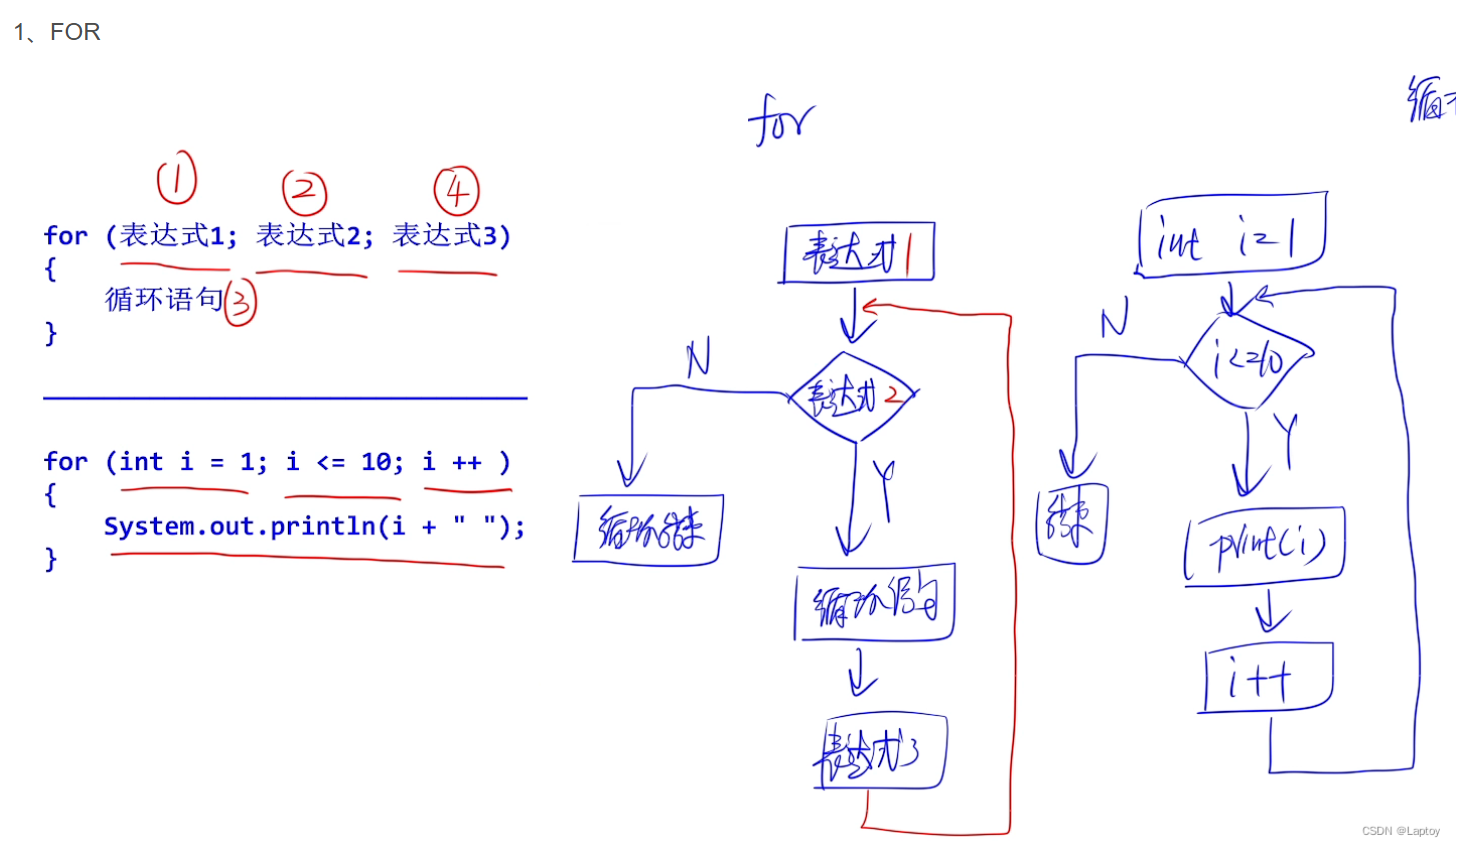 1、FOR
for
① ② ④
for (表达式1; 表达式2; 表达式3)
{
循环语句③
}
for (int i = 1; i <= 10; i ++ )
{
System.out.println(i + " ");
}
表达式1
N
表达式2
Y
循环结束
循环语句
表达式3
int i=1
N
i<=10
Y
结束
print(i)
i++
循
CSDN @Laptoy